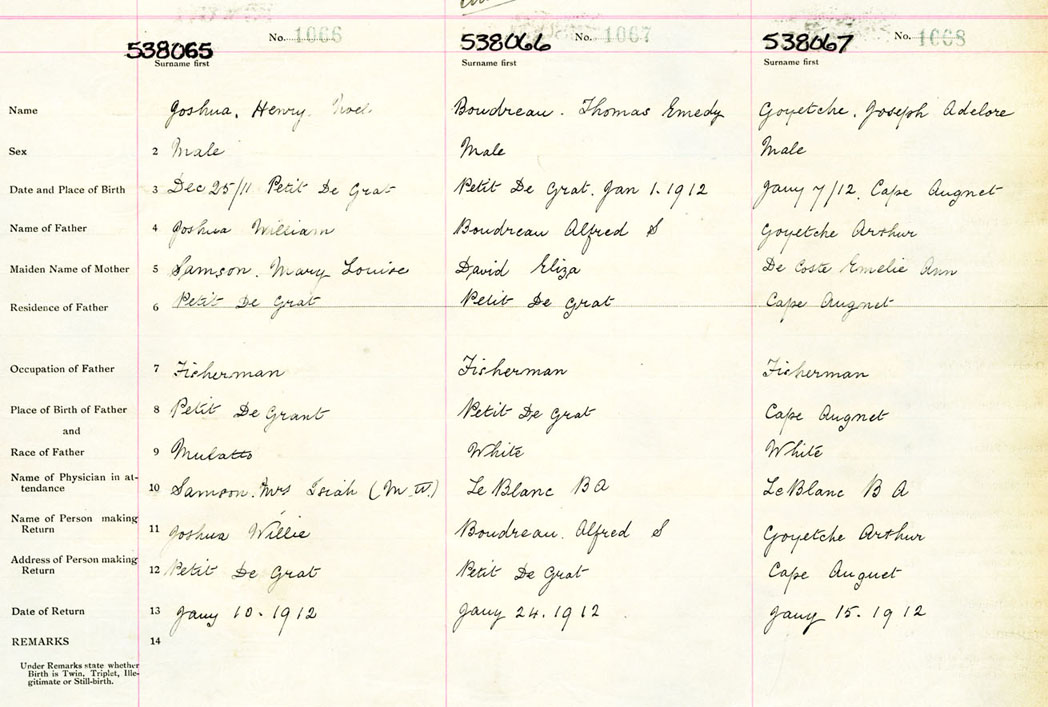 No. 1066
538065
Surname first
538066
No. 1067
Surname first
538067
No. 1068
Surname first
Name
Joshua, Henry. Noel
Boudreau. Thomas Emedy
Goyetche. Joseph Adelore
Sex 2
Male
Male
Male
Date and Place of Birth 3
Dec 25/11 Petit De Grat
Petit De Grat. Jan 1. 1912
Jany 7/12. Cape Augnet
Name of Father 4
Joshua William
Boudreau Alfred S
Goyetche Arthur
Maiden Name of Mother 5
Samson. Mary Louise
David Eliza
De Coste Emelie Ann
Residence of Father 6
Petit De Grat
Petit De Grat
Cape Augnet
Occupation of Father 7
Fisherman
Fisherman
Fisherman
Place of Birth of Father 8
Petit De Grant
Petit De Grat
Cape Augnet
and
Race of Father 9
Mulatto
White
White
Name of Physician in at-
tendance 10
Samson. Mrs Isiah (M.W.)
Le Blanc B A
LeBlanc B A
Name of Person making
Return 11
Joshua Willie
Boudreau. Alfred S
Goyetche Arthur
Address of Person making
Return 12
Petit De Grat
Petit De Grat
Cape Auguet
Date of Return 13
Jany 10. 1912
Jany 24. 1912
Jany 15. 1912
REMARKS 14
Under Remarks state whether
Birth is Twin, Triplet, Ille-
gitimate or Still-birth.